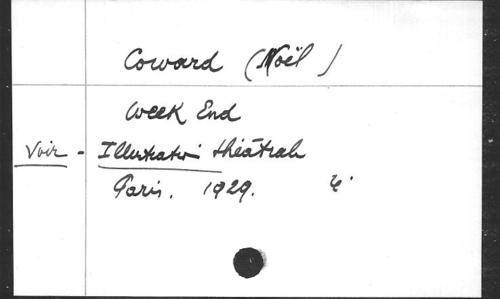 Coward (Noël)
Week End
Voir - Illustration théâtrale
Paris. 1929. 4°